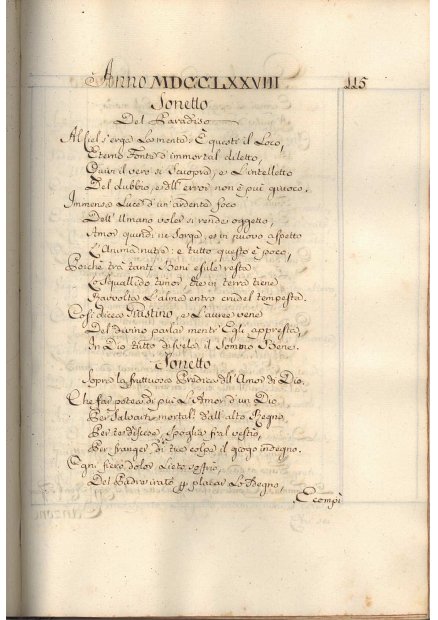 Anno MDCCLXXVIII 115
Sonetto
Del Paradiso
Al Ciel s'erga La mente: È questi il Loco,
Eterno Fonte d'immortal diletto,
Quivi il vero si scuopre, e L'intelletto
Del dubbio, e dell' error non è più giuoco.
Immenso Luce d'un'ardente foco
Dell' Umano voler si rende oggetto,
Amor quindi ne sorge, e in nuovo aspetto
L'Anima nutre: e tutto questo è poco,
Poichè trà tanti Beni esule resta
Lo squallido timor, che in terra tiene
Travolta L'alma entro crudel tempesta.
Così dicea Faustino, e L'auree vene
Del divino parlar mentr' Egli appresta,
In Dio tutto disvela il Sommo Bene.
Sonetto
Sopra la fruttuosa Predica dell' Amor di Dio.
Che far potea di più L'Amor d'un Dio
Per Salvar i mortali: dall' alto Regno
Per te discese, spoglia fral vestio,
Per franger di tue colpe il giogo indegno.
Ogni fiero dolor Lieto soffrio,
Del Padre irato p placar Lo sdegno,
E compì